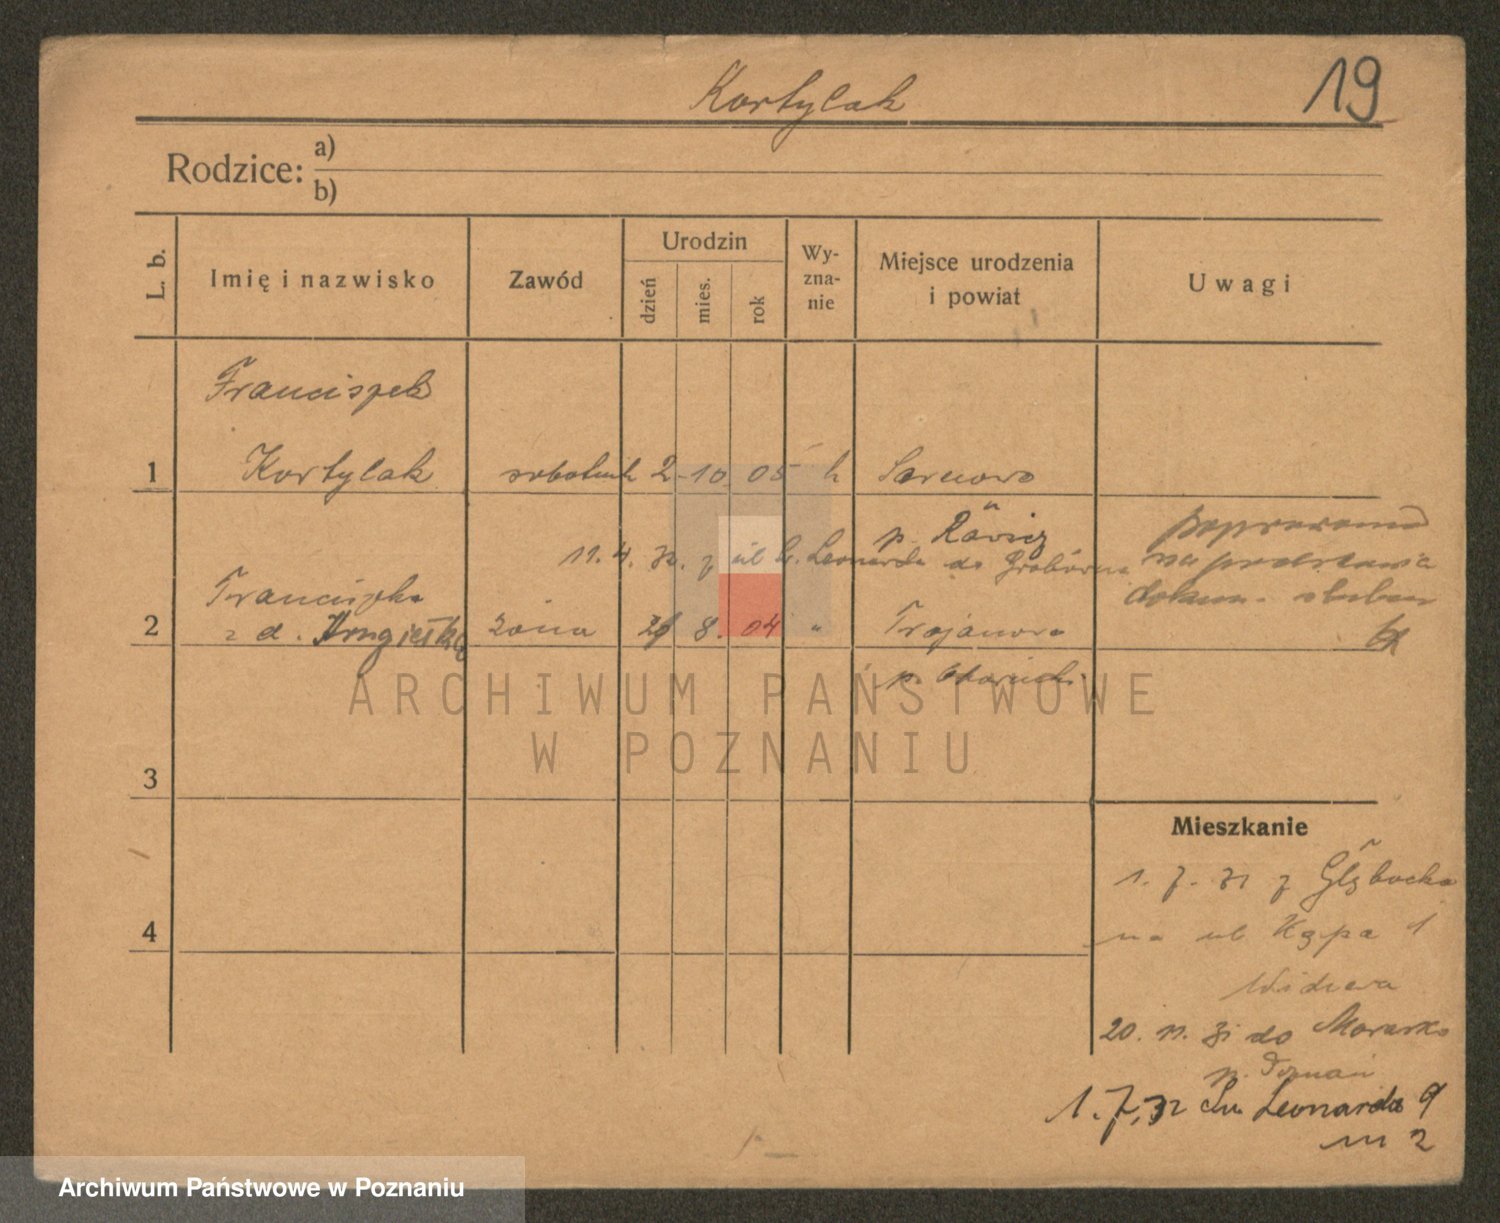 Kortylak
19
Rodzice: a)
b)
L. b.
Imię i nazwisko
Zawód
Urodzin
dzień
mies.
rok
Wy-
zna-
nie
Miejsce urodzenia
i powiat
Uwagi
Franciszek
1 Kortylak robotnik 2 10 05 k Sarnowo
p. Rawicz
11. 4. z ul Leonarda do
Franciszka
2 z d. żona 8. 04 „ Trojanow
p.
poprawiono
na podstawie
dokum. ślubu
3
4
Mieszkanie
1. 7. 31 z Głębocka
na ul Kępa 1
20. 11. 31 do Morasko
p. Poznań
1. 7. 32 Św. Leonarda 9
m 2
ARCHIWUM PAŃSTWOWE
W POZNANIU
Archiwum Państwowe w Poznaniu